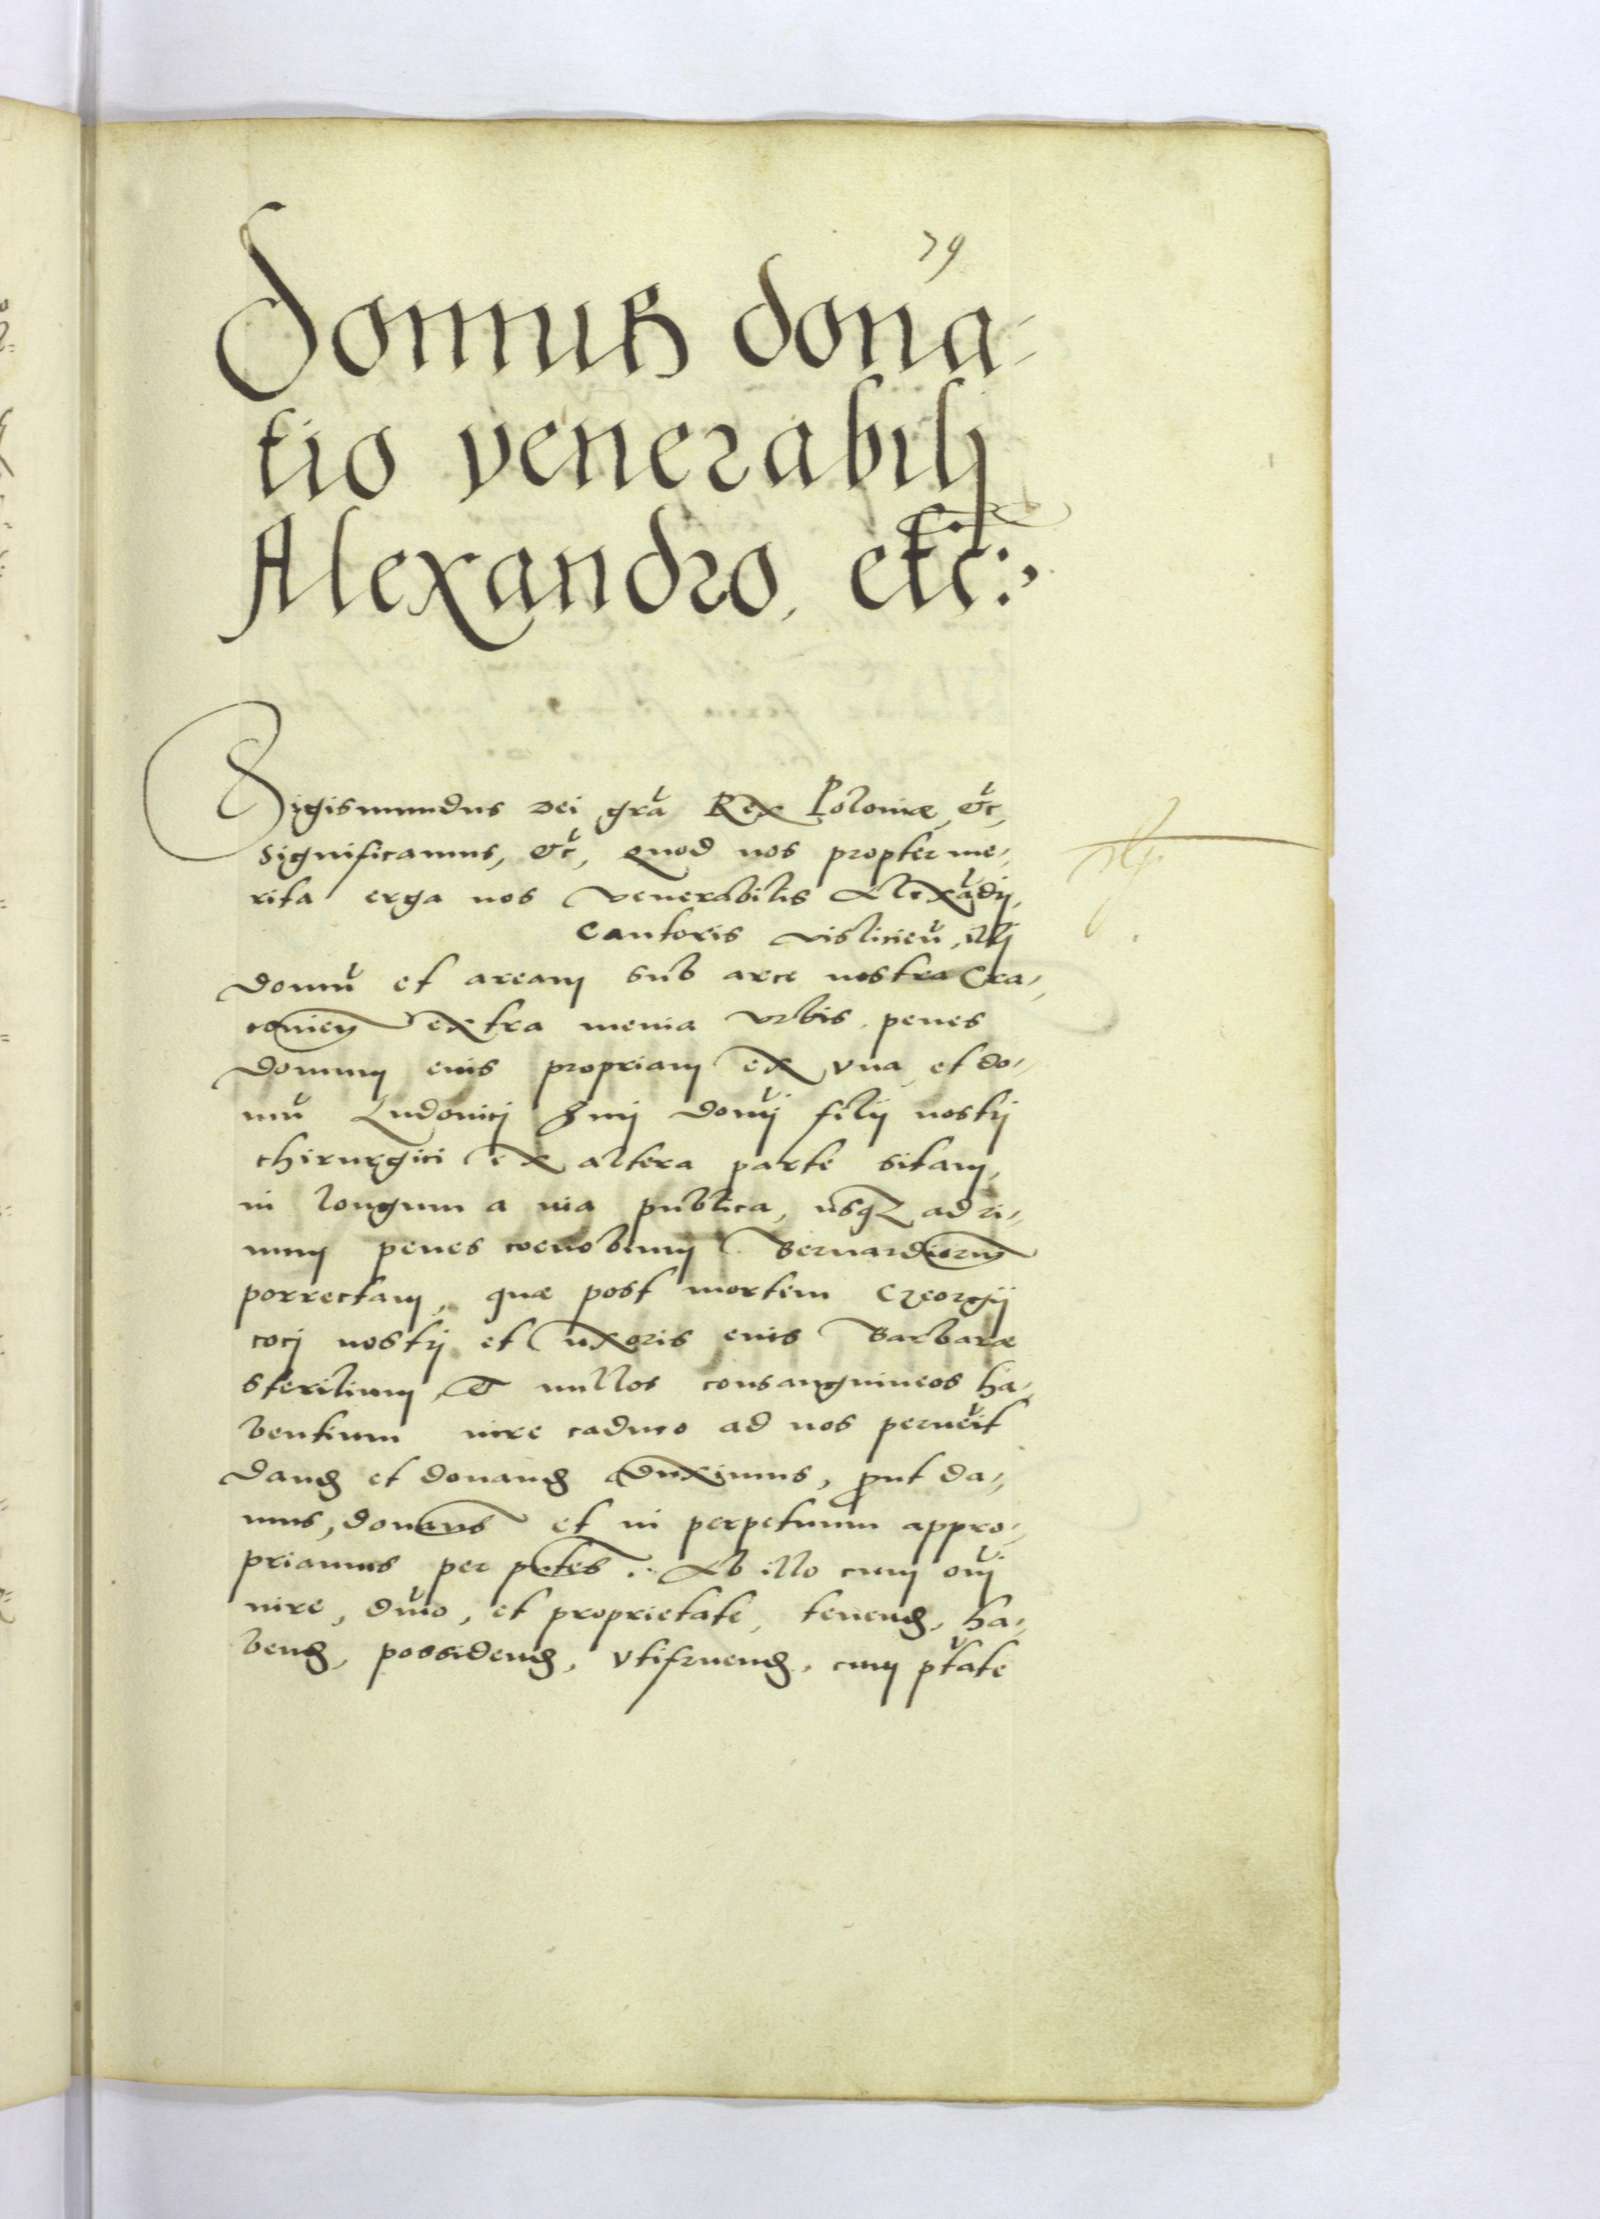 79
Domus dona-
tio venerabilj
Alexandro, etc:,
Sigismundus Dei gra Rex Poloniæ, &c,
Significamus, &c, quod nos propter me-
rita erga nos venerabilis Alexādrj,
Cantoris vislicien, illj
domū et aream sub arce nostra Cra-
covien extra menia vrbis penes
domum eius propriam ex vna, et do-
mū Ludovicj domj filij nostrj
chirurgici ex altera parte sitam,
in longum a via publica, usqz ad ri-
uum penes coenobium Bernardinorum
porrectam, quæ post mortem Georgij
cocj nostrj et uxoris eius Barbaræ
sterilium, & nullos consanguineos ha-
bentium iure caduco ad nos peruēit
dand et donand duximus, prout da-
mus, donams et in perpetuum appro-
priamus per pntes. Ab illo cum oīnj
iure, dnīo, et proprietate, tenend, ha-
bend, possidend, vtifruend, cum ptāte